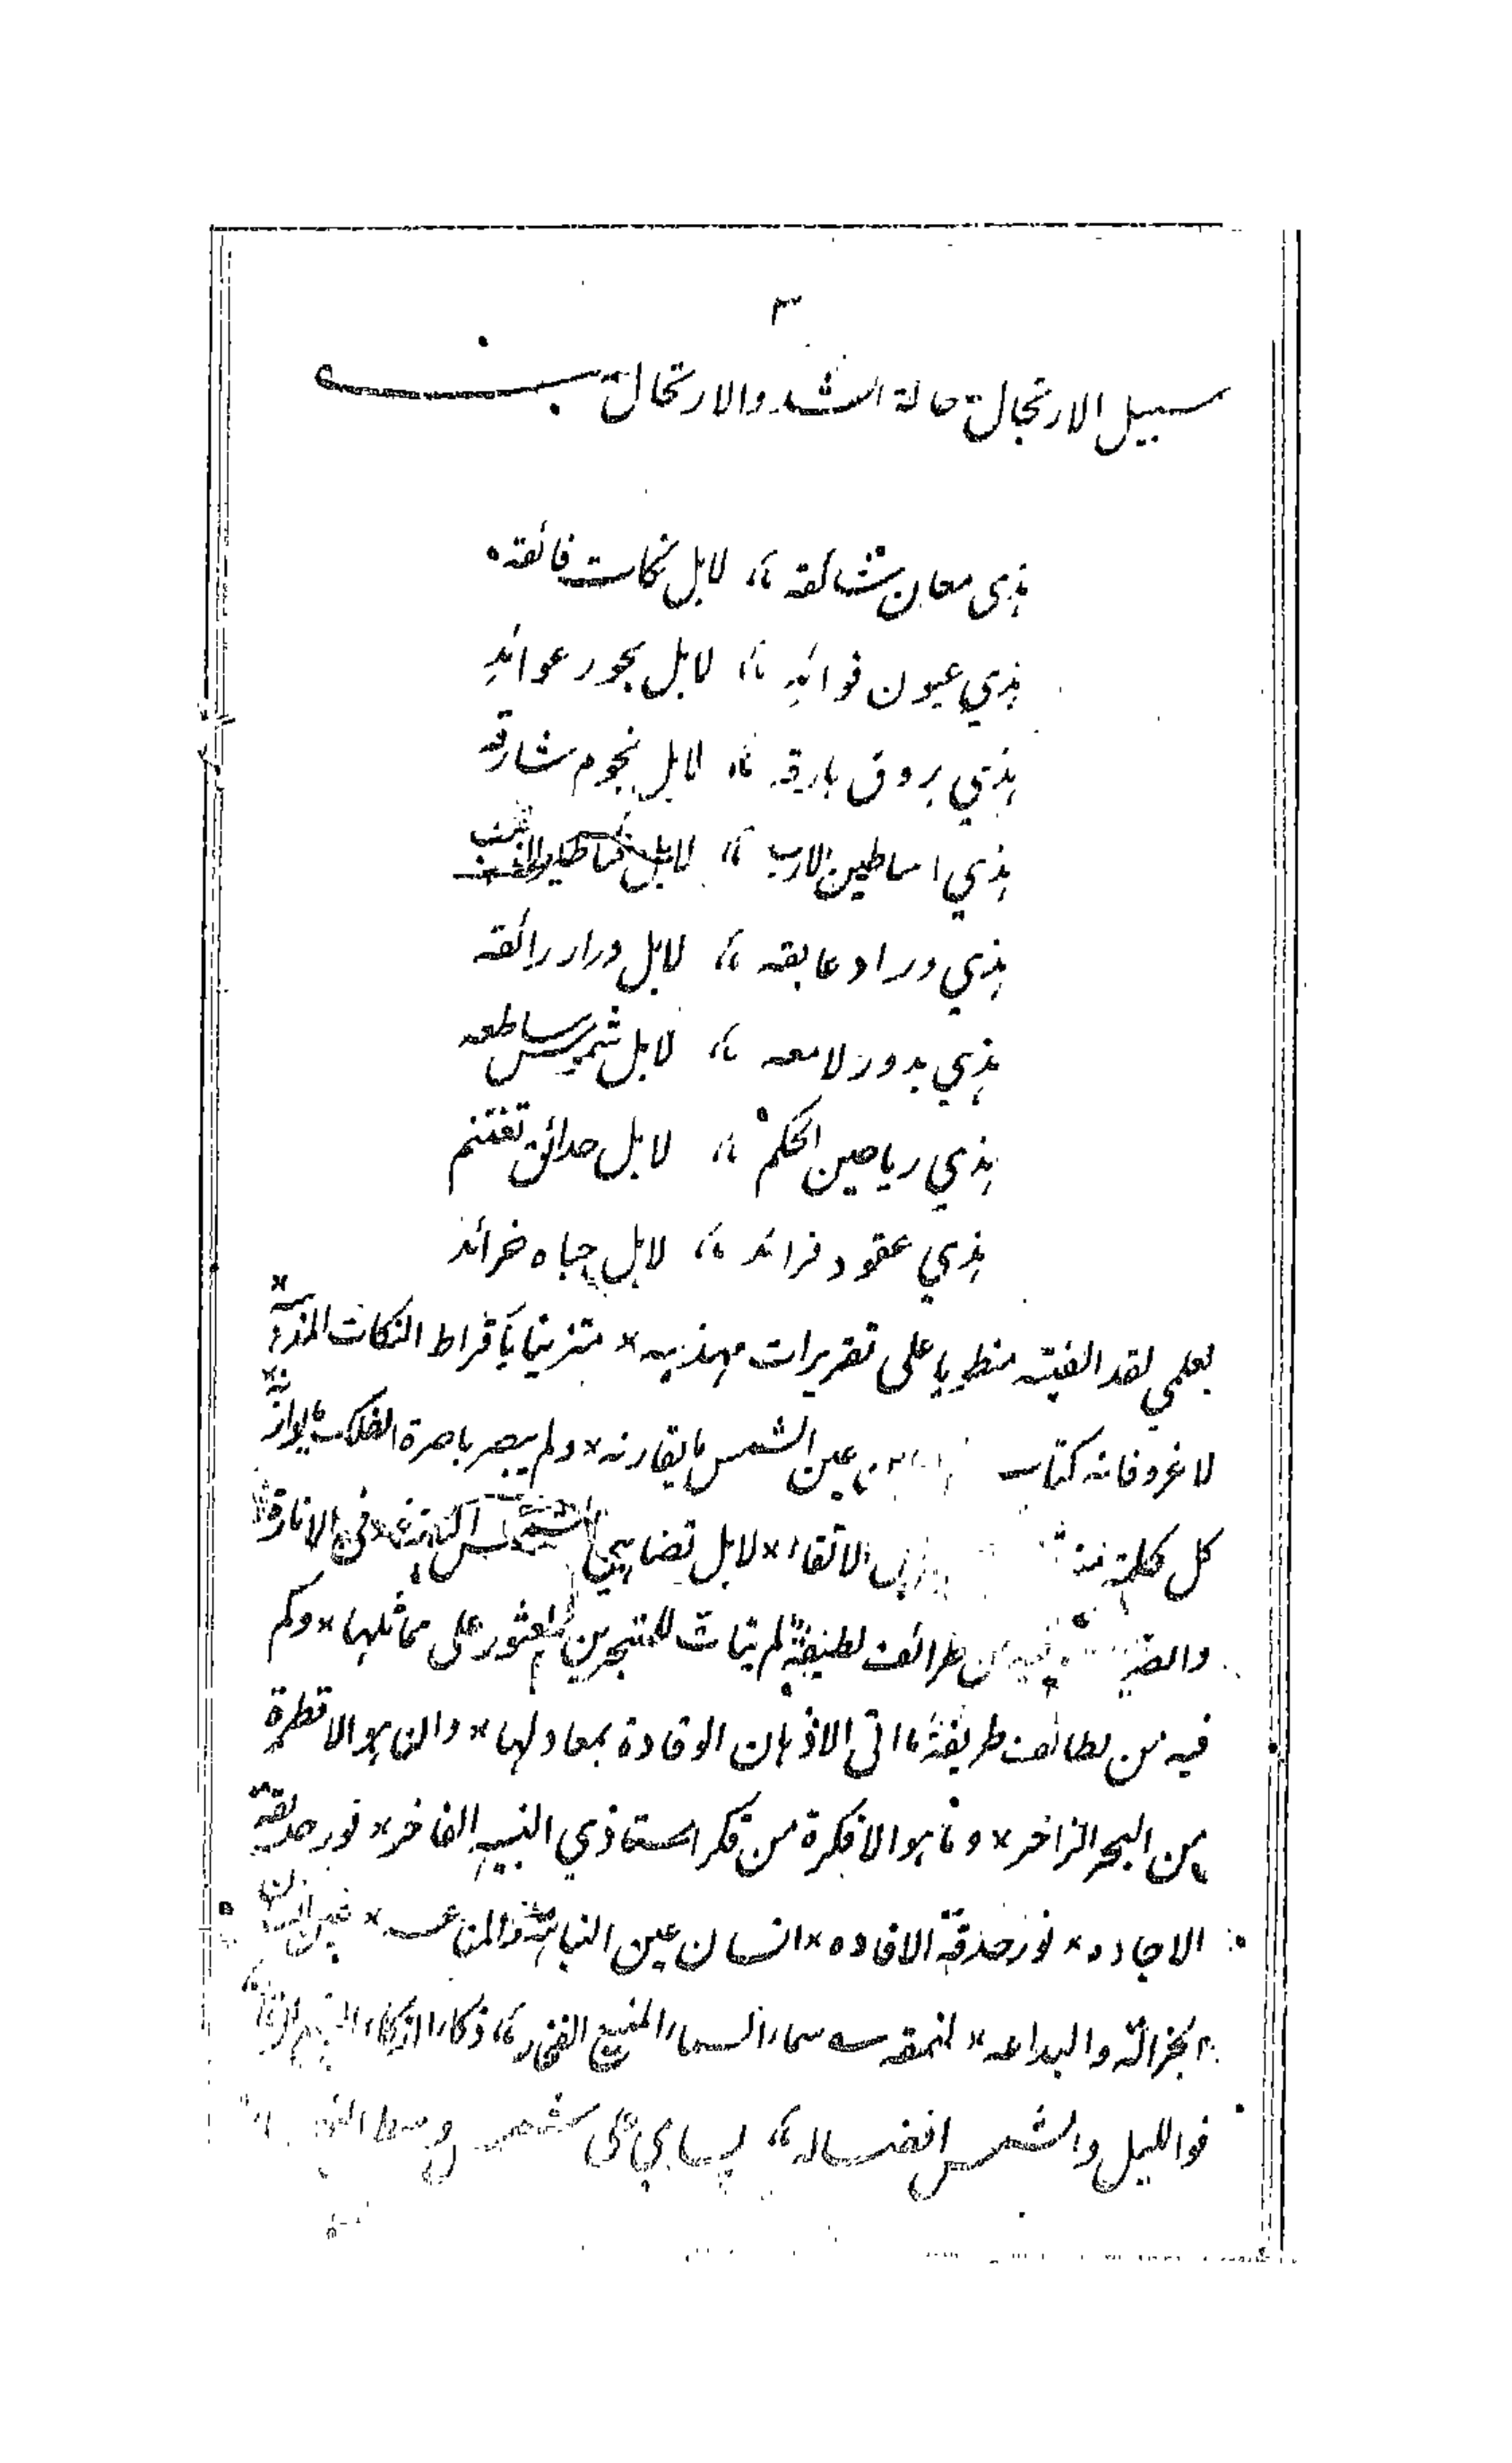 ٣
سبيل الارتجال حالة الشد والارتحال
هذى معان شائقه ،، لابل نكات فائقه
هذي عيون فوائد ،، لابل بحور عوائد
هذي بروق بارقه ،، لابل نجوم شارقه
هذي اساطين الارب ،، لابل
هذي وراد عابقه ،، لابل درار رائقه
هذي بدور لامعه ،، لابل شموس ساطعه
هذي رياحين الحكم ،، لابل حدائق تغتنم
هذي عقود فرائد ،، لابل جباه خرائد
لعلمي لقد الفيته منطويا على تقريرات مهذبه × متزينا باقراط النكات المذهبة ×
لا غرو فانه كتاب عين الشمس ما يقارنه × ولم يبصر باصرة الفلك ما يوازنه ×
كل كلمة الاتقاء × لابل تضاهي الشمس في الانارة
والضيا من طرائف لطيفة لم يتات للمتبحرين العثور على مماثلها × وكم
فيه من لطائف طريفة ما اتى الاذهان الوقادة بمعادلها × وان هو الا قطرة
من البحر الزاخر × وما هو الا فكرة من فكر استاذي النبيه الفاخر × نور حديقة
الاجاده × نور حدقة الافاده × انسان عين النباهة والمناعه ×
الجزالة والبداعه × لنمقه سماء السماء المنيع الفخار ،، ذكاء الذكاء
فوالليل والشمس افضاله ،، يباهي على شمس وسط